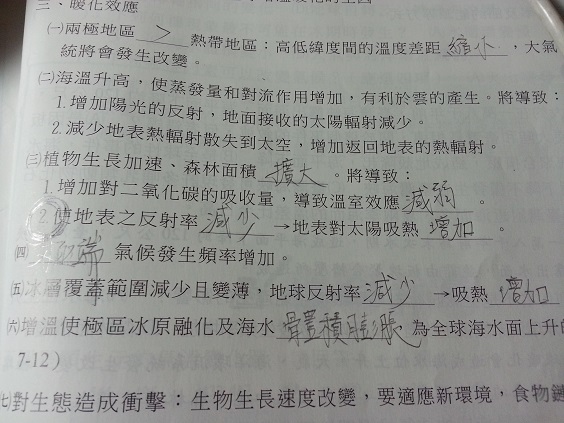 三、暖化效應
㈠兩極地區 > 熱帶地區：高低緯度間的溫度差距 縮小 ，大氣
統將會發生改變。
㈡海溫升高，使蒸發量和對流作用增加，有利於雲的產生。將導致：
1.增加陽光的反射，地面接收的太陽輻射減少。
2.減少地表熱輻射散失到太空，增加返回地表的熱輻射。
㈢植物生長加速、森林面積 擴大 。將導致：
1.增加對二氧化碳的吸收量，導致溫室效應 減弱 。
2.使地表之反射率 減少 →地表對太陽吸熱 增加 。
㈣ 端 氣候發生頻率增加。
㈤冰層覆蓋範圍減少且變薄，地球反射率 減少 →吸熱 增加
㈥增溫使極區冰原融化及海水 體積膨漲 為全球海水面上升的
7-12）
㈦對生態造成衝擊：生物生長速度改變，要適應新環境，食物鏈